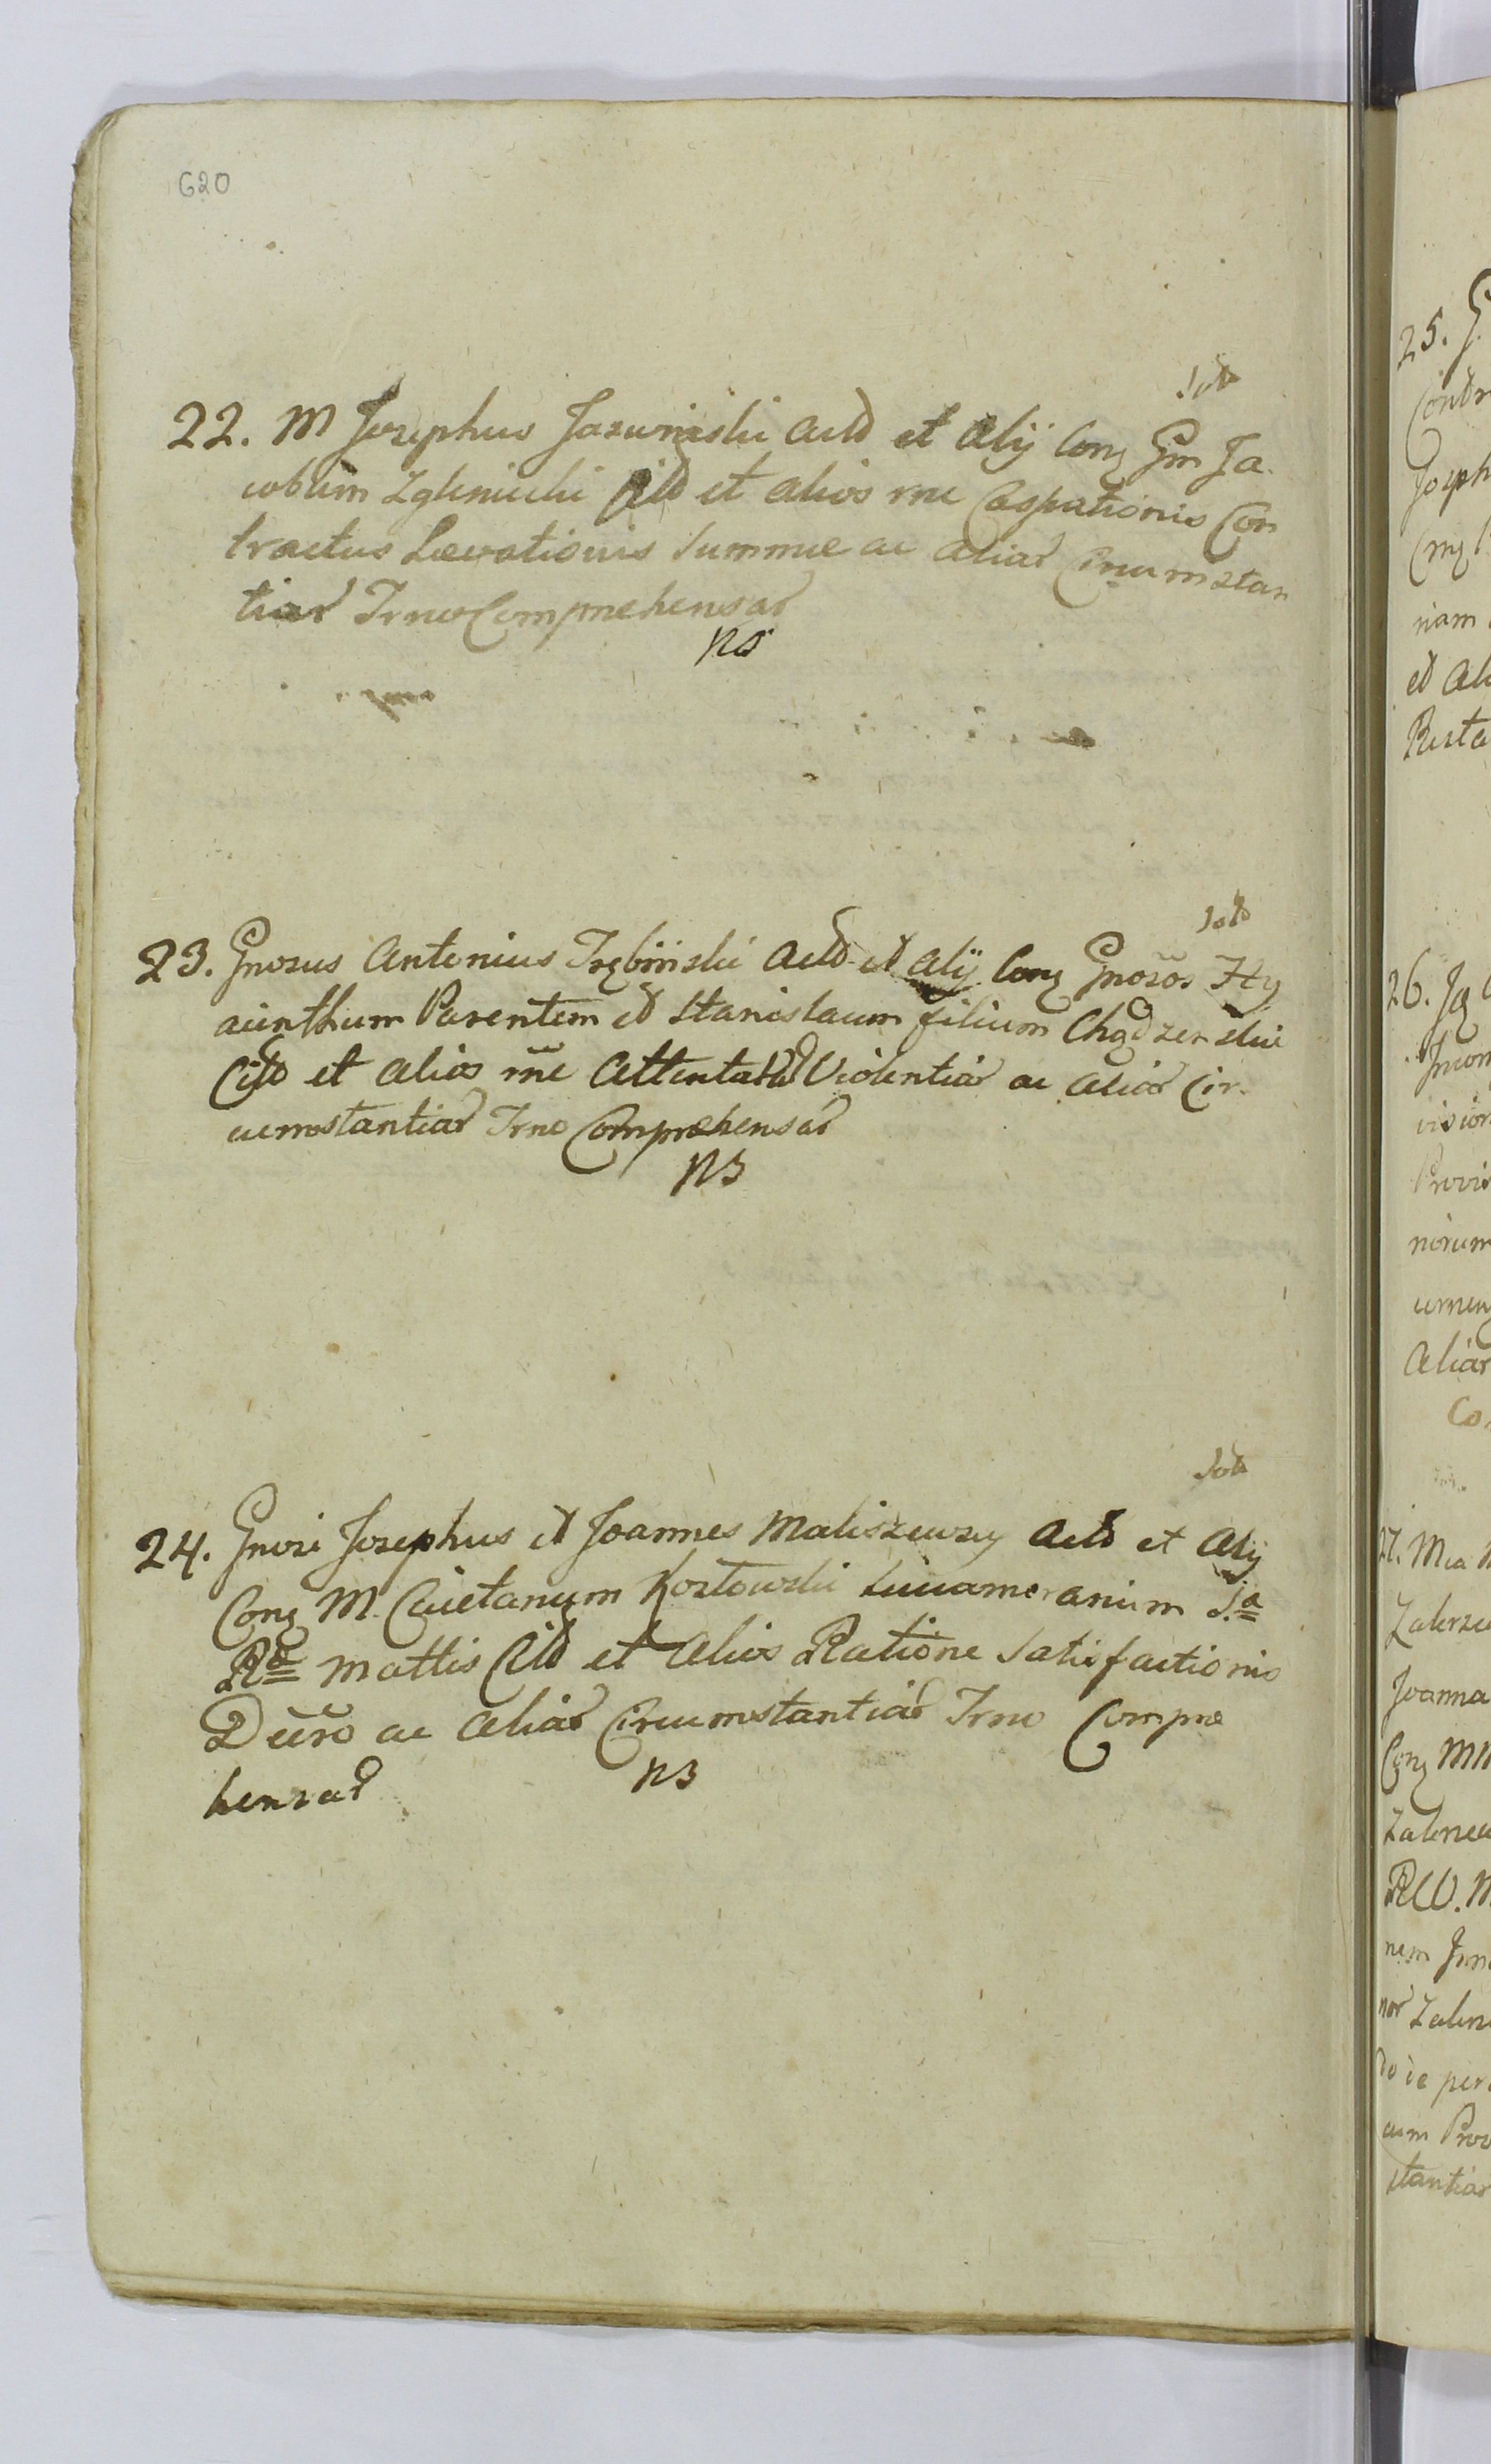 620
Sol
22. M Josephus Jasiwinski Actô et Alij Conz Gm Ja-
cobum Zglinicki Citô et alios rne Cassationis Con
tractus Levationis Summe ac aliar Circumstan
tiar Trno Comprehensar
NB
Sol
23. Gnosus Antonius Trębinski Actô et Alij Conz Gnosos Hy
acinthum Parentem et Stanislaum filium Chądzenskie
Citô et alios rne Attentatar Violentiar ac aliar Cir-
cumstantiar Trno Comprehensar
NB
Sol
24. Gnosi Josephus et Joannes Maliszewscy Actô et Alij
Conz M. Caietanum Kostowski Succamerarium S.a
R.a Mattis Citô et Alios Ratione Satisfactionis
Decro ac aliar Circumstantiar Trno Compre
hensar NB
25. G.
Contr
Joseph
Conz
niam
et Ali
Resta
26.
vision
Provis
norum
Aliar
Co
27. Mca
Joanna
Conz MM
nem
cum Prov
stantiar